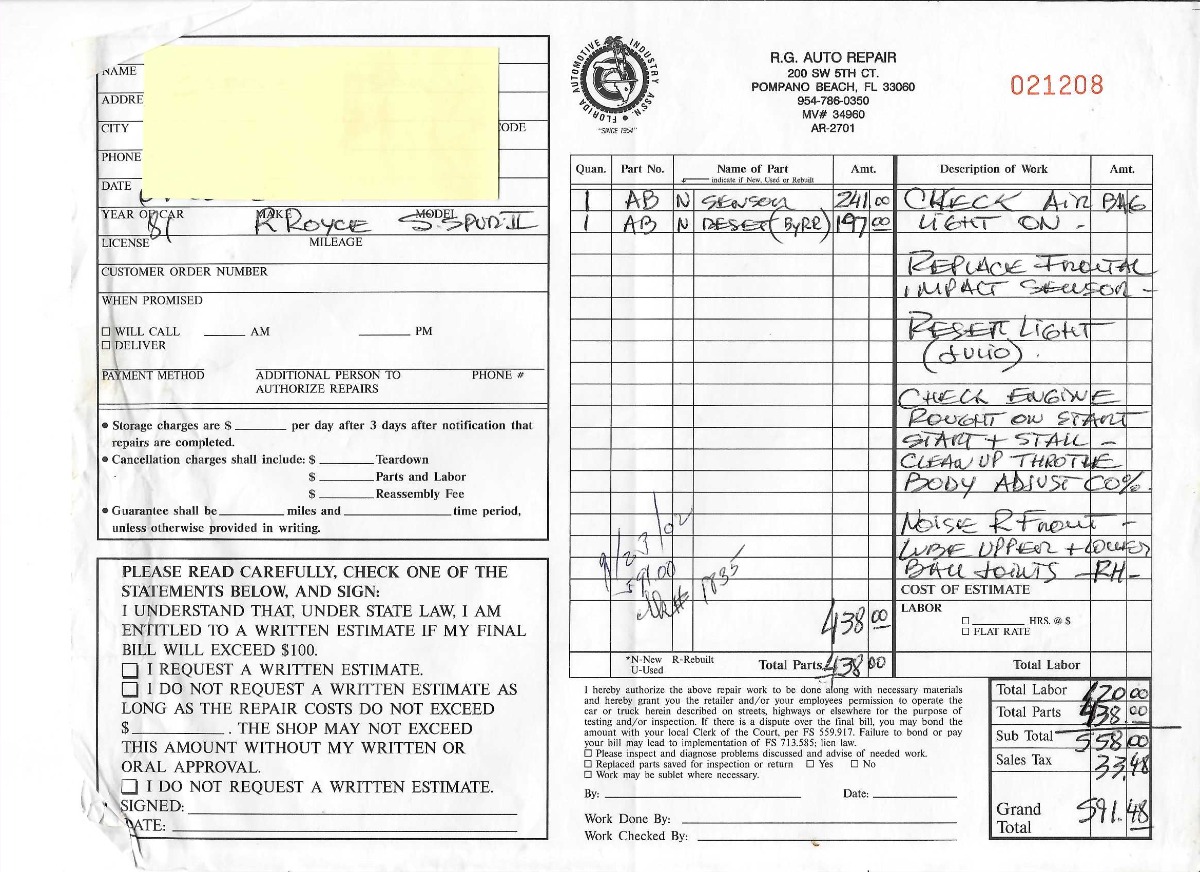 NAME
ADDRE
CITY
ODE
PHONE
DATE
YEAR OF CAR MAKE MODEL
81 R ROYCE S. SPUR II
LICENSE MILEAGE
CUSTOMER ORDER NUMBER
WHEN PROMISED
☐ WILL CALL ______ AM ________ PM
☐ DELIVER
PAYMENT METHOD ADDITIONAL PERSON TO AUTHORIZE REPAIRS PHONE #
• Storage charges are $ ________ per day after 3 days after notification that
repairs are completed.
• Cancellation charges shall include: $ ________ Teardown
$ ________ Parts and Labor
$ ________ Reassembly Fee
• Guarantee shall be __________ miles and ________________ time period,
unless otherwise provided in writing.
PLEASE READ CAREFULLY, CHECK ONE OF THE
STATEMENTS BELOW, AND SIGN:
I UNDERSTAND THAT, UNDER STATE LAW, I AM
ENTITLED TO A WRITTEN ESTIMATE IF MY FINAL
BILL WILL EXCEED $100.
☐ I REQUEST A WRITTEN ESTIMATE.
☐ I DO NOT REQUEST A WRITTEN ESTIMATE AS
LONG AS THE REPAIR COSTS DO NOT EXCEED
$ __________ . THE SHOP MAY NOT EXCEED
THIS AMOUNT WITHOUT MY WRITTEN OR
ORAL APPROVAL.
☐ I DO NOT REQUEST A WRITTEN ESTIMATE.
SIGNED:
DATE:
FLORIDA AUTOMOTIVE INDUSTRY ASS'N.
"SINCE 1954"
R.G. AUTO REPAIR
200 SW 5TH CT.
POMPANO BEACH, FL 33060
954-786-0350
MV# 34960
AR-2701
021208
Quan. Part No. Name of Part Amt. Description of Work Amt.
indicate if New, Used or Rebuilt
1 AB N SENSOR 241.00 CHECK AIR BAG
1 AB N RESET (By RR) 197.00 LIGHT ON -
REPLACE FRONTAL
IMPACT SENSOR -
RESET LIGHT
(JULIO).
CHECK ENGINE
ROUGHT ON START
START + STALL -
CLEAN UP THROTLE
BODY ADJUST CO%.
NOISE R FRONT -
LUBE UPPER + LOWER
BALL JOINTS - RH -
9/23/02
591.00
Ck# 1835
COST OF ESTIMATE
438.00
LABOR
☐ ________ HRS. @ $
☐ FLAT RATE
*N-New R-Rebuilt
U-Used
Total Parts 438.00
Total Labor
I hereby authorize the above repair work to be done along with necessary materials
and hereby grant you the retailer and/or your employees permission to operate the
car or truck herein described on streets, highways or elsewhere for the purpose of
testing and/or inspection. If there is a dispute over the final bill, you may bond the
amount with your local Clerk of the Court, per FS 559.917. Failure to bond or pay
your bill may lead to implementation of FS 713.585; lien law.
☐ Please inspect and diagnose problems discussed and advise of needed work.
☐ Replaced parts saved for inspection or return ☐ Yes ☐ No
☐ Work may be sublet where necessary.
By: Date:
Work Done By:
Work Checked By:
Total Labor 120.00
Total Parts 438.00
Sub Total 558.00
Sales Tax 33.48
Grand Total 591.48